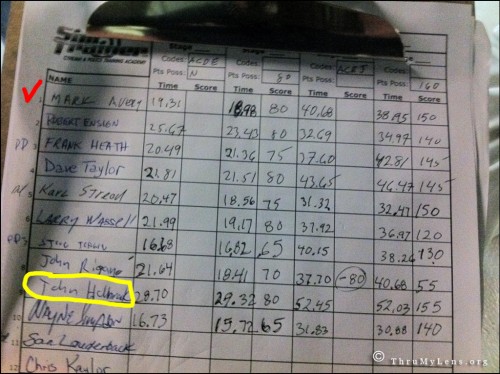 CIVILIAN & POLICE TRAINING ACADEMY
Stage Stage
Codes: ACDE Codes: Codes: ACEJ Codes:
Pts Poss: N Pts Poss: 80 Pts Poss: Pts Poss: 160
NAME Time Score Time Score Time Score Time Score
1 MARK Avery 19.31 18.98 80 40.68 38.95 150
2 ROBERT ENSIGN 25.67 23.43 80 32.69 34.97 140
PD 3 FRANK HEATH 20.49 21.36 75 37.60 42.81 145
4 Dave Taylor 21.81 21.51 80 43.65 46.47 145
5 Karl 20.47 18.56 75 31.32 32.47 150
6 LARRY 21.99 19.17 80 37.92 36.97 120
PD 16.68 16.82 65 40.15 38.26 130
John 21.64 18.41 70 37.70 -80 40.68 55
John 28.70 29.32 80 52.45 52.03 155
WAYNE 16.73 15.72 65 31.83 30.88 140
11 Louderback
12 Chris Kaylor
© ThruMyLens.org